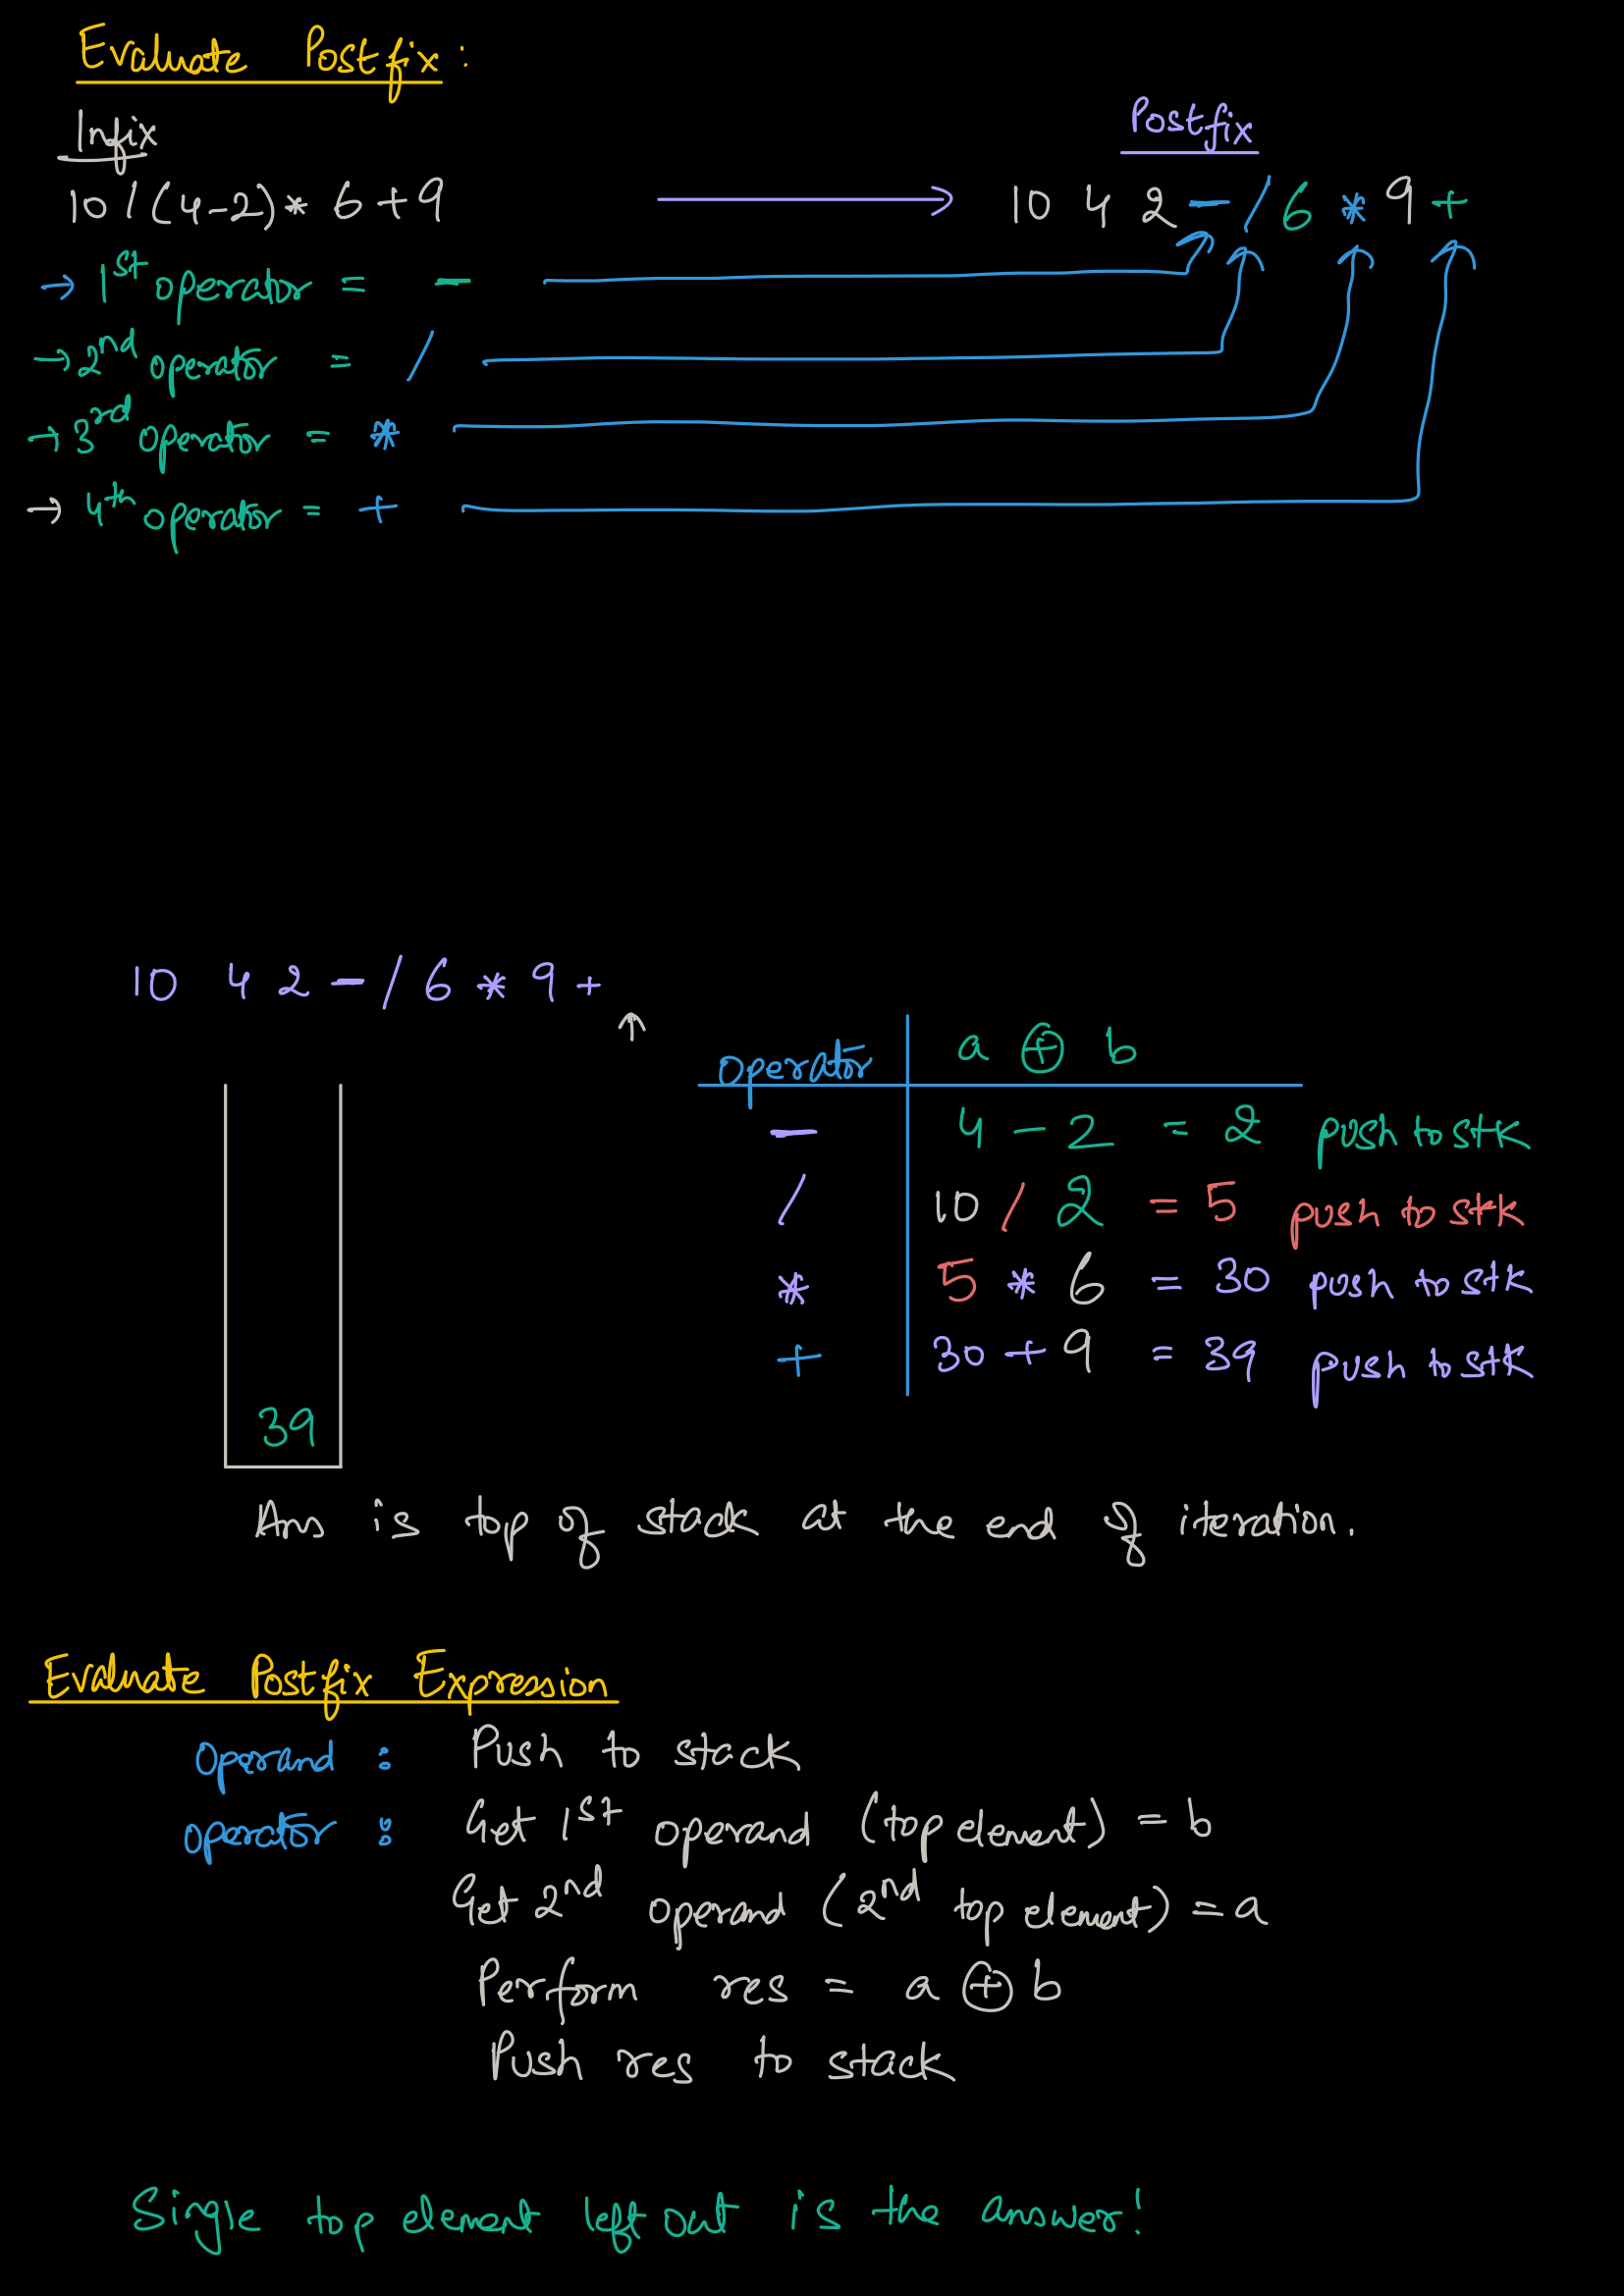 Evaluate Postfix :
Infix
Postfix
10 / (4-2) * 6 + 9 → 10 4 2 - / 6 * 9 +
→ 1st operator = -
→ 2nd operator = /
→ 3rd operator = *
→ 4th operator = +
10 4 2 - / 6 * 9 +
↑
operator a ⊕ b
- 4 - 2 = 2 push to stk
/ 10 / 2 = 5 push to stk
* 5 * 6 = 30 push to stk
+ 30 + 9 = 39 push to stk
39
Ans is top of stack at the end of iteration.
Evaluate Postfix Expression
Operand : Push to stack
operator : Get 1st operand (top element) = b
Get 2nd operand (2nd top element) = a
Perform res = a ⊕ b
Push res to stack
Single top element left out is the answer!